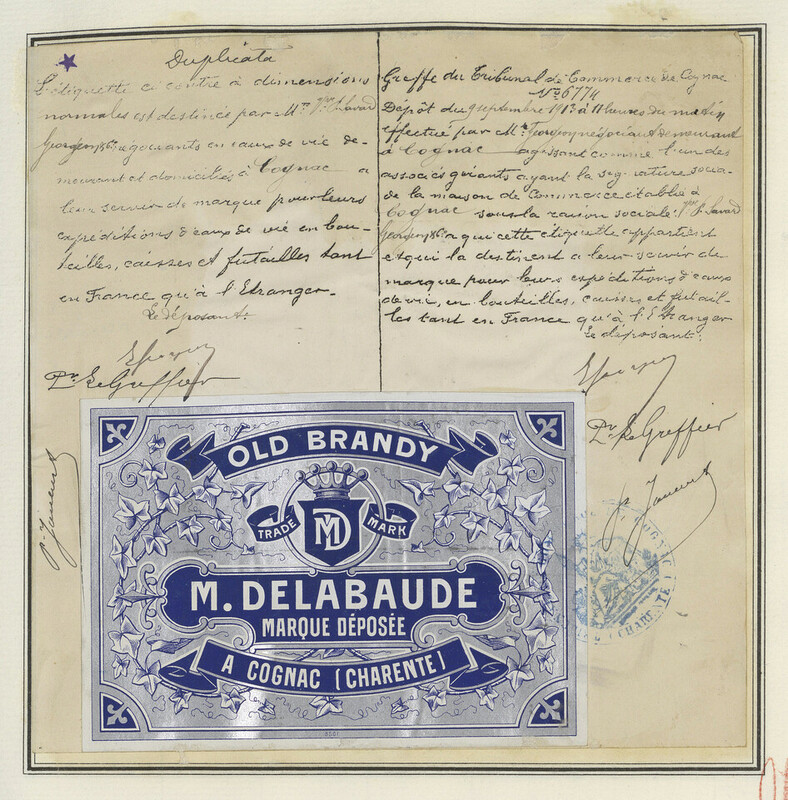 Duplicata
L'étiquette ci contre à dimensions
normales est destinée par Mrs Savard
négociants en eaux de vie de-
meurant et domiciliés à Cognac a
leur servir de marque pour leurs
expéditions d'eaux de vie en bou-
teilles, caisses et futailles tant
en France qu'à l'Etranger.
Le déposant:
Pr Le Greffier
Greffe du Tribunal de Commerce de Cognac
No 6774
Dépôt du 9 septembre à 11 heures du matin
effectué par Mr négociant demeurant
à Cognac agissant comme l'un des
associés gérants ayant la signature socia-
le de la maison de Commerce établie à
Cognac sous la raison sociale: Savard
a qui cette étiquette appartient
et qui la destinent a leur servir de
marque pour leurs expéditions d'eaux
de vie, en bouteilles, caisses et futail-
les tant en France qu'à l'Etranger
Le déposant:
Pr Le Greffier
OLD BRANDY
TRADE MARK
MD
M. DELABAUDE
MARQUE DÉPOSÉE
A COGNAC (CHARENTE)
COGNAC
(CHARENTE)